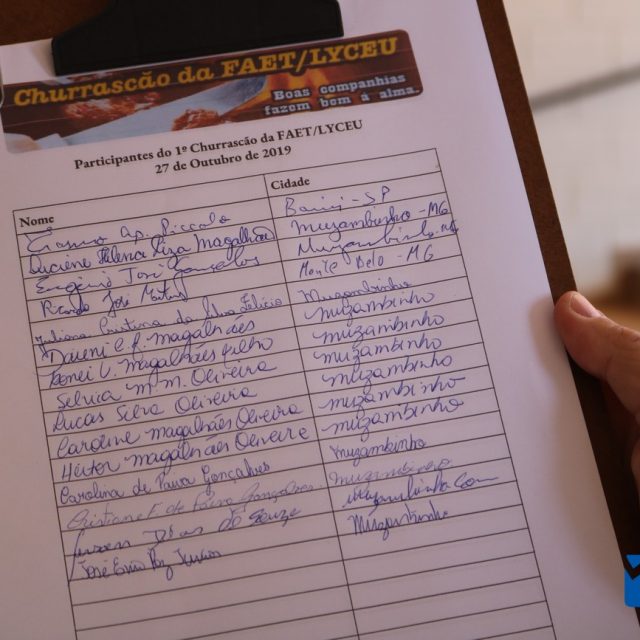 Churrascão da FAET/LYCEU
Boas companhias
fazem bem à alma.
Participantes do 1º Churrascão da FAET/LYCEU
27 de Outubro de 2019
Nome Cidade
Ap. Piccolo - SP
Luciene Helena Magalhães Muzambinho-MG
Eugênio José Gonçalves Muzambinho MG
Ricardo José Monte Belo - MG
Juliana da Silva Felício Muzambinho
Magalhães muzambinho
V. Magalhães filho muzambinho
Selvia M. M. Oliveira muzambinho
Lucas Silva Oliveira muzambinho
Caroline Magalhães Oliveira muzambinho
Heitor Magalhães Oliveira muzambinho
Carolina de Paiva Gonçalves Muzambinho
Cristiane F. de Paiva Gonçalves muzambinho
Dias de Souza Muzambinho
José Muzambinho